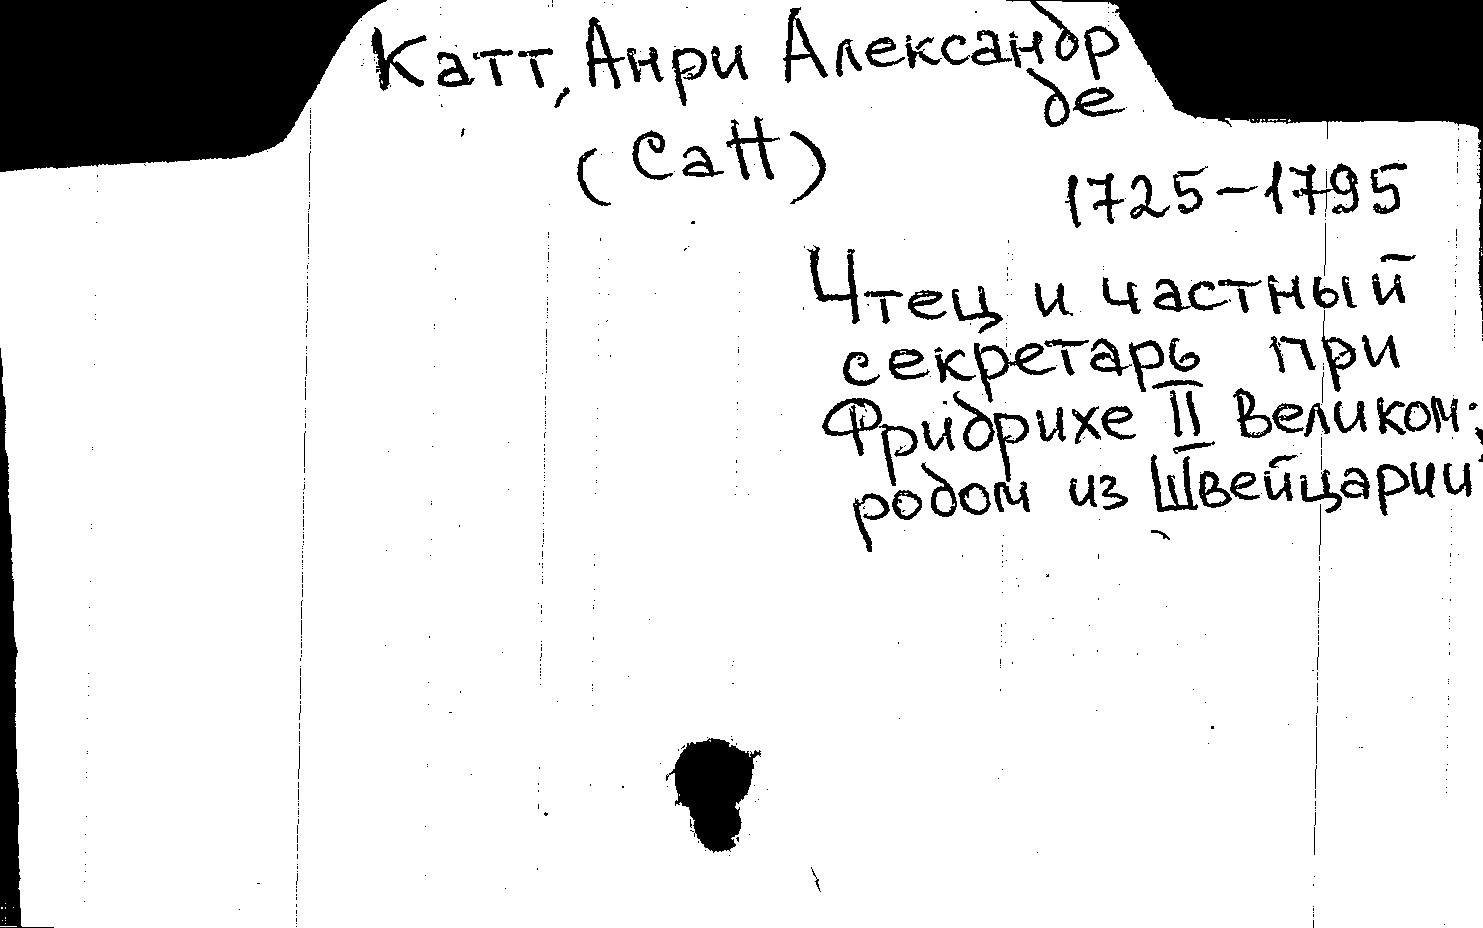 Катт, Анри Александр
де
(Catt)
1725-1795
Чтец и частный
секретарь при
Фридрихе II Великом;
родом из Швейцарии